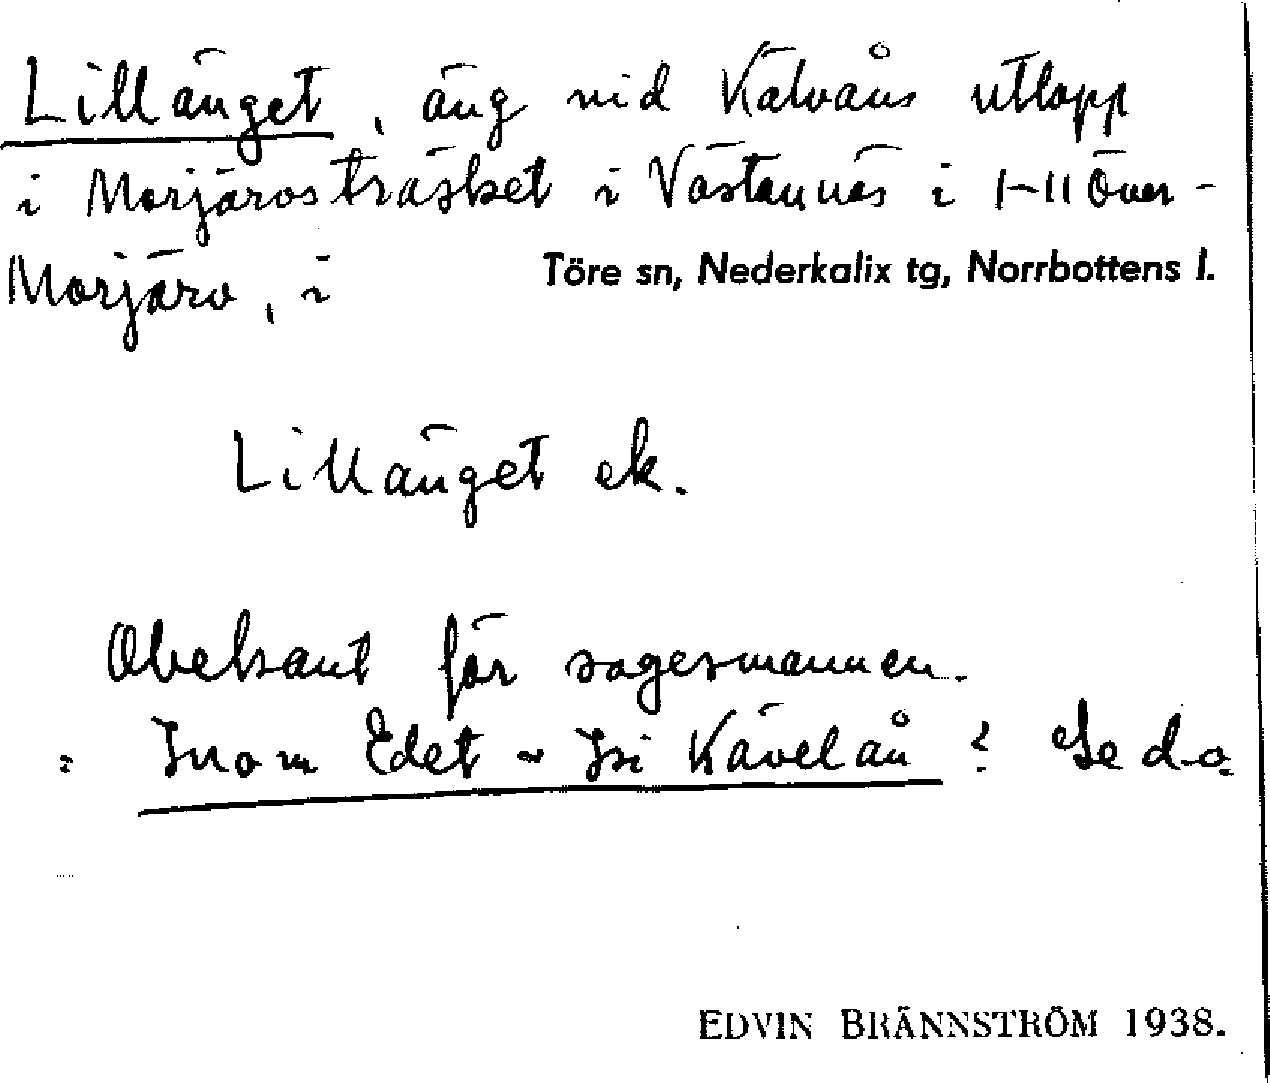 Lillänget, äng vid Kälvåns utlopp
i Morjärvsträsket i Västannäs i 1-11 Över-
Morjärv, i Töre sn, Nederkalix tg, Norrbottens l.
Lillänget ek.
Obekant för sagesmannen.
= Inom Edet ~ Isi Kävelån? Se d.o.
EDVIN BRÄNNSTRÖM 1938.